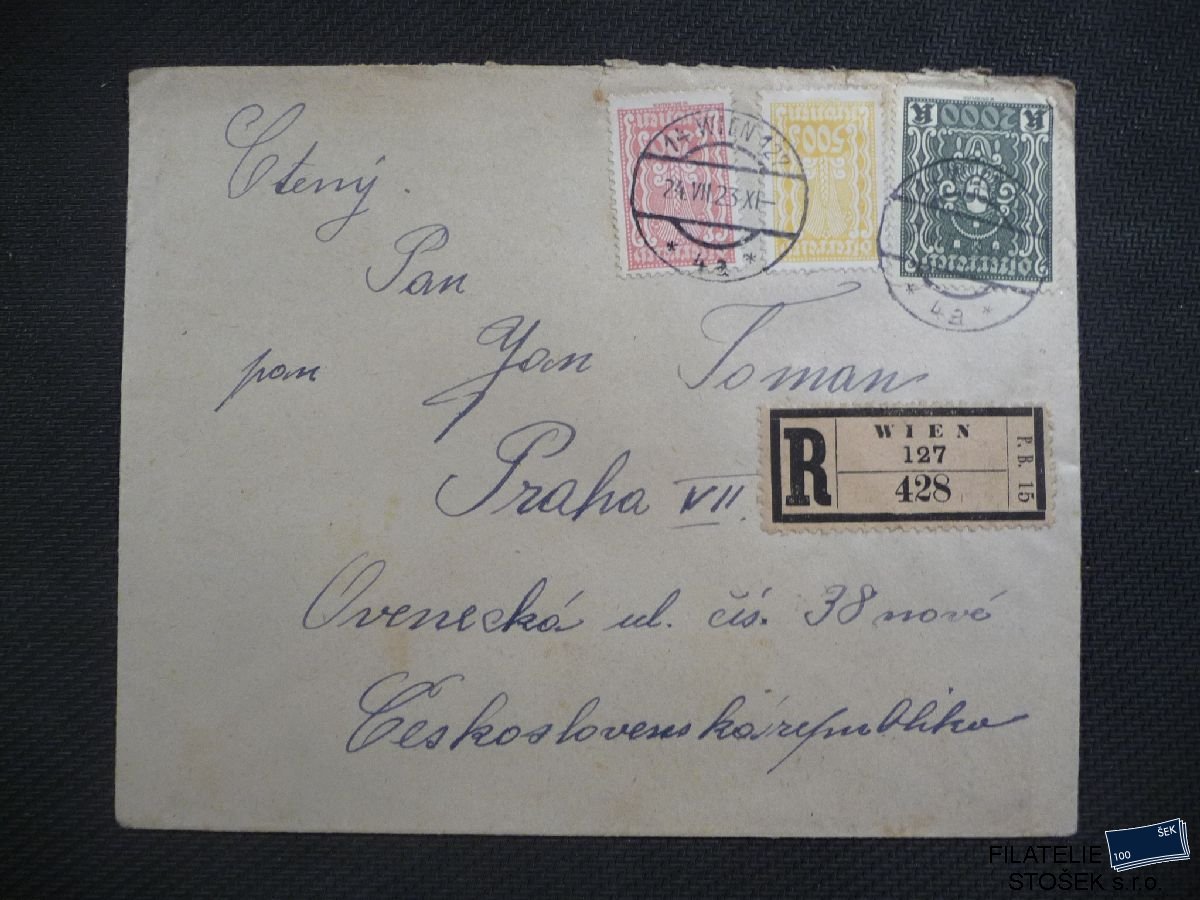 Ctený
Pan
pan Jan Toman
Praha VII.
Ovenecká ul. čís. 38 nové
Československá republika
14 WIEN 127
24.VII.23.XI-
* 4a *
500
Österreich
K 2000 K
Österreich
* 4a *
R
WIEN
127
428
P. B. 15
100 ŠEK
FILATELIE
STOŠEK s.r.o.